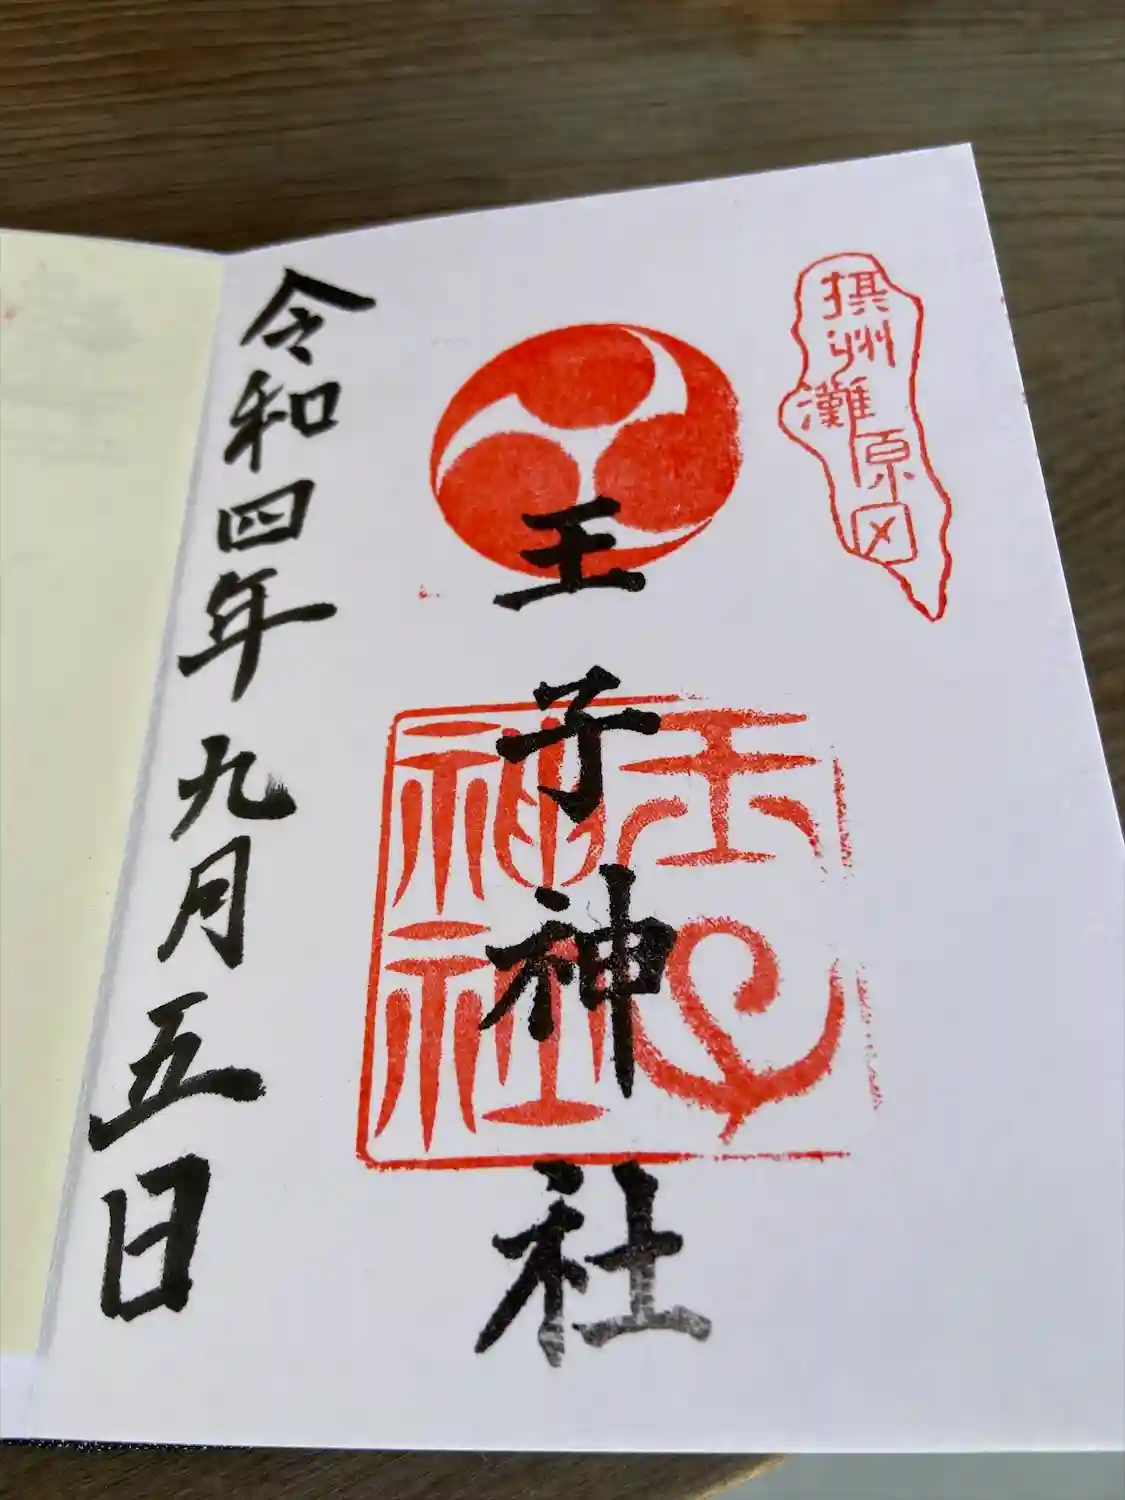 摂州灘原田
王子神社
王子
神社
令和四年九月五日